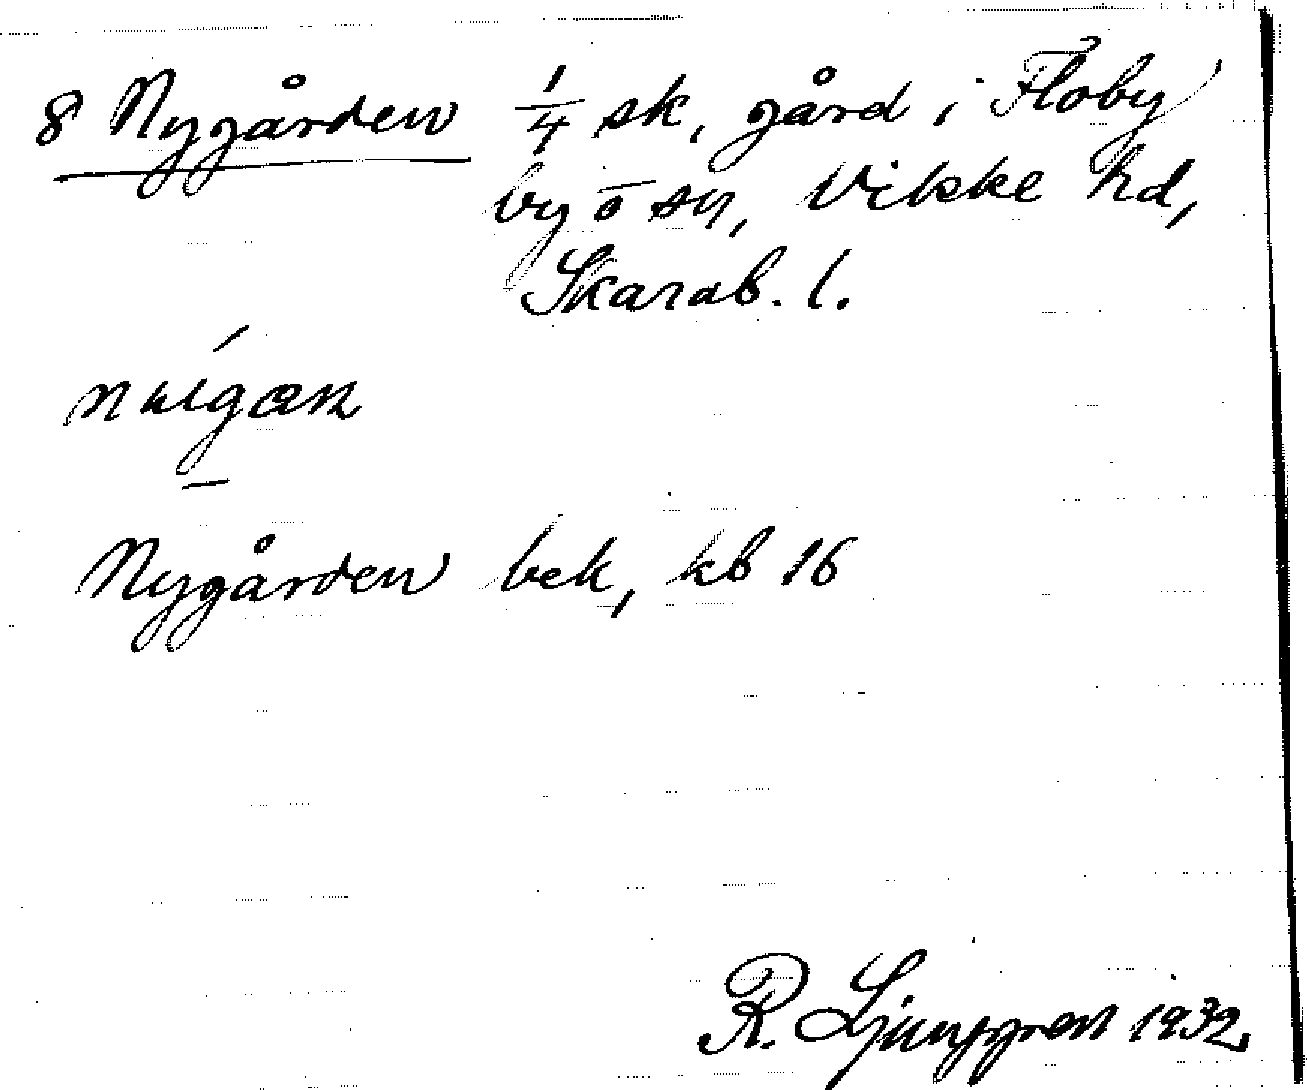 8 Nygården 1/4 sk, gård i Floby
by o sn, Vilske hd,
Skarab. l.
Nygården bek, kb 16
R. Ljunggren 1932